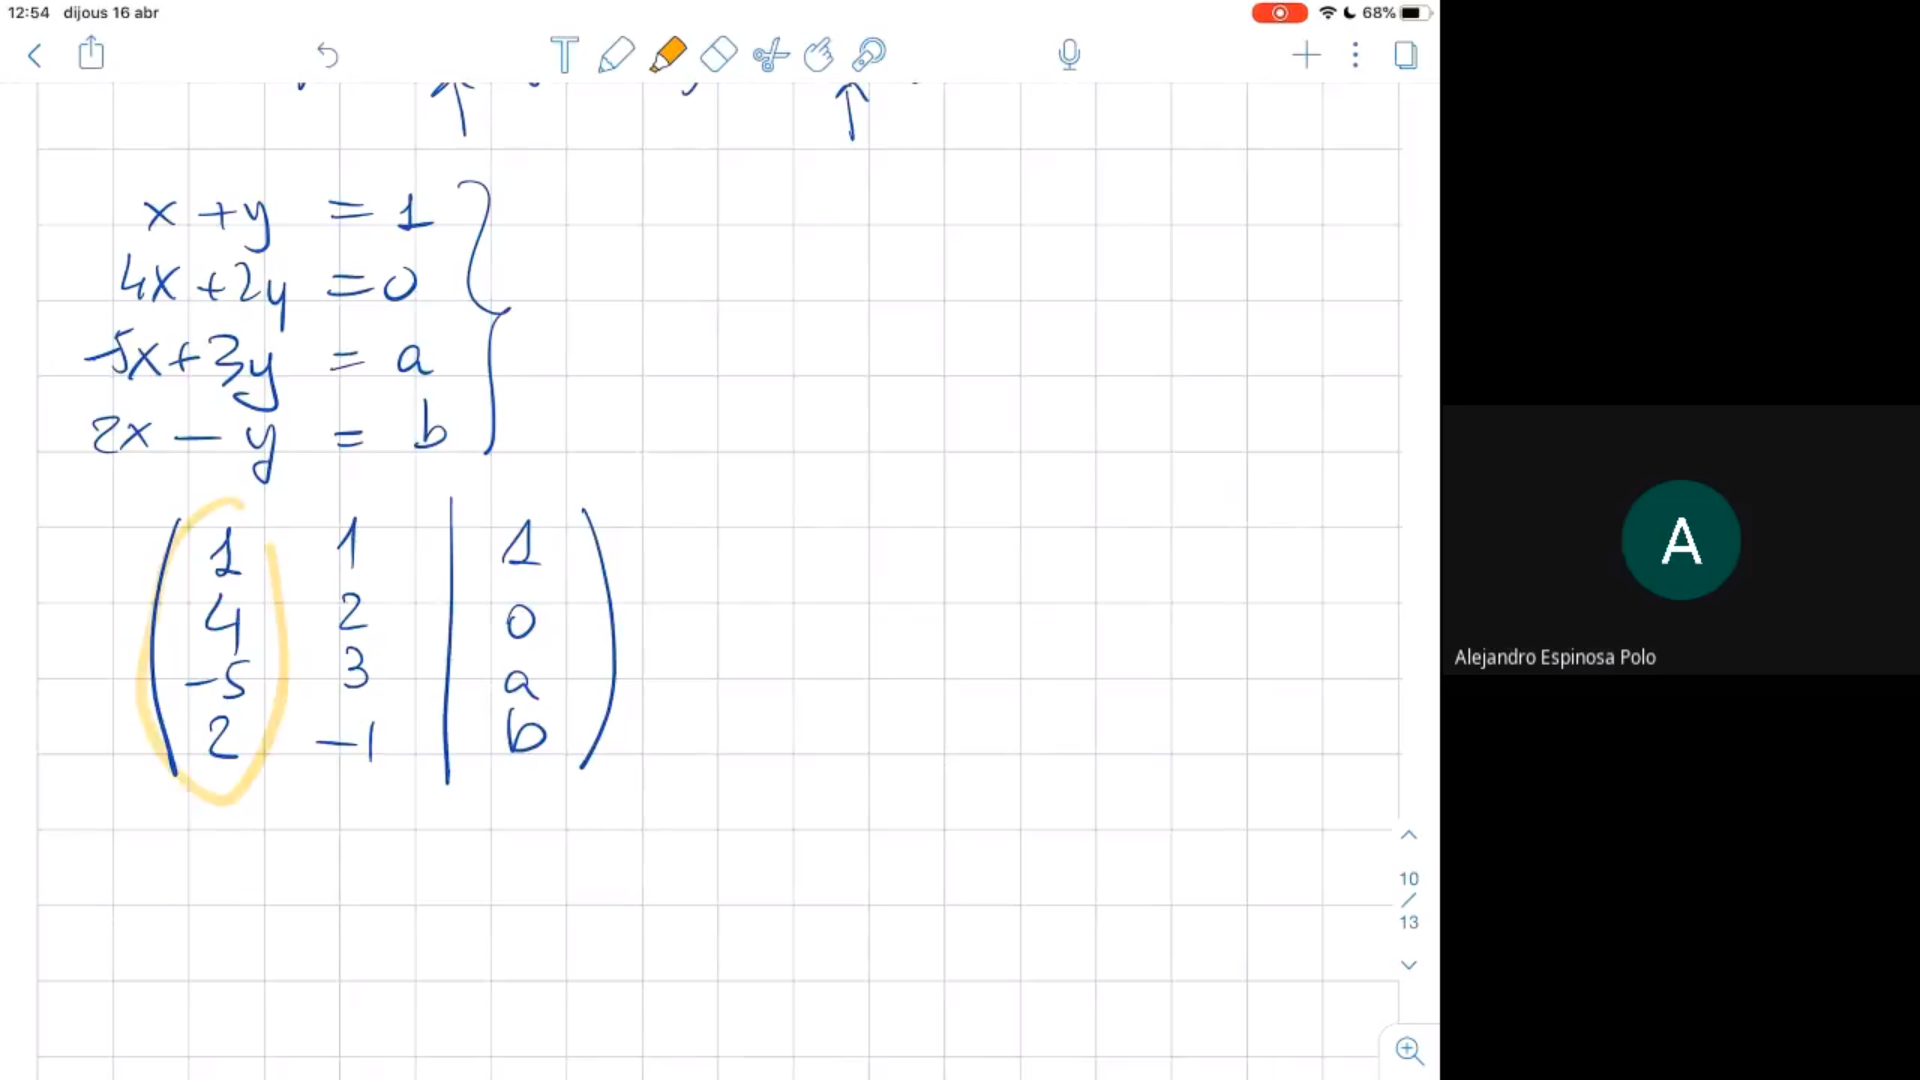 12:54 dijous 16 abr 68%
x + y = 1
4x + 2y = 0
-5x + 3y = a
2x - y = b
1 1 | 1
4 2 | 0
-5 3 | a
2 -1 | b
10
/
13
A
Alejandro Espinosa Polo